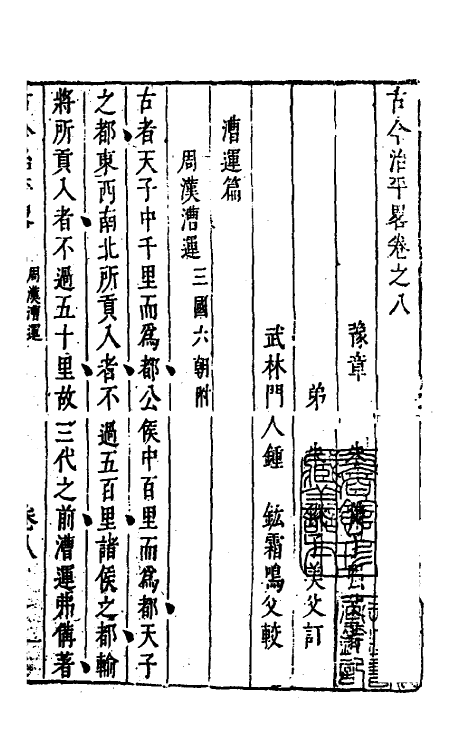 古今治平畧卷之八
豫章
弟 美父訂
武林門人鍾 鈜霜鳴父較
漕運篇
周漢漕運 三國六朝附
古者天子中千里而為都公侯中百里而為都天子
之都東西南北所貢入者不過五百里諸侯之都輸
將所貢入者不過五十里故三代之前漕運弗備著
周漢漕運 卷八